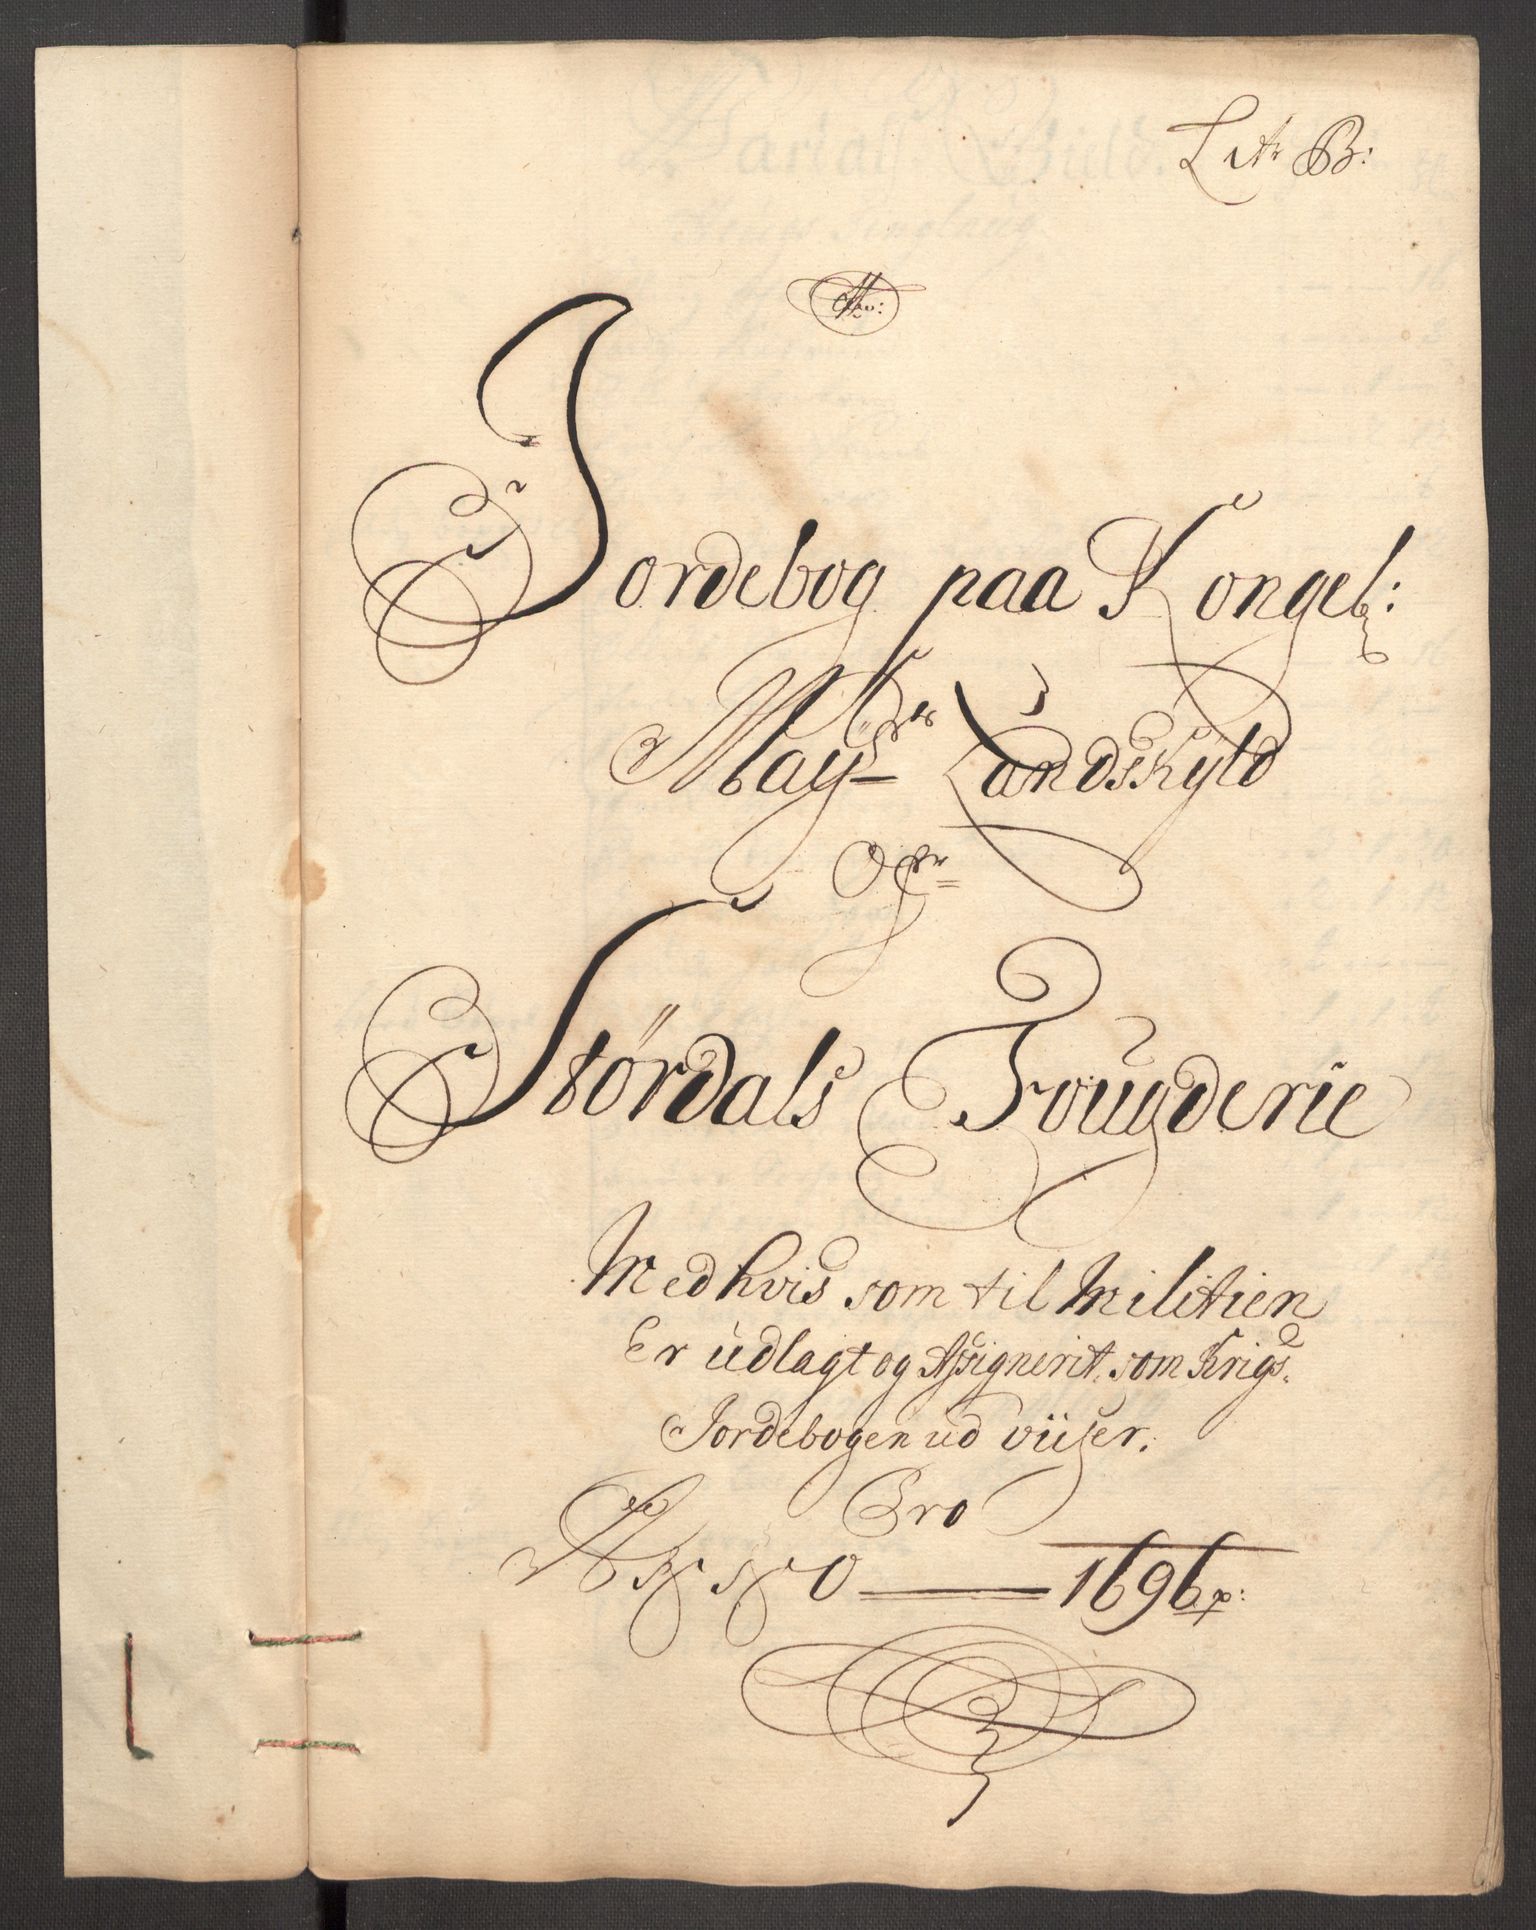 Litr B:
Jordebog paa Kongel:
Mayts Landskyld
Ofr
Størdals Fougderie
Med hvis som til Militien
Er udlagt og Assignerit, som Krigs
Jordebogen ud viiser.
Pro
Anno 1696